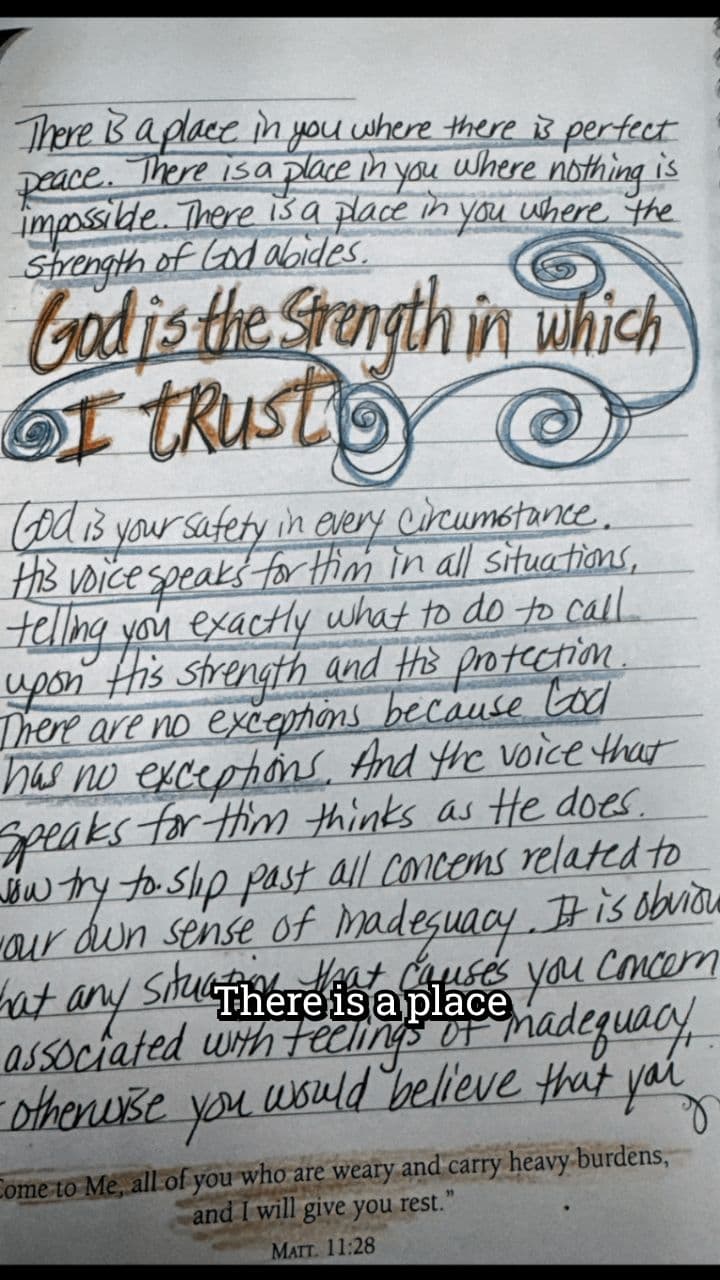 There is a place in you where there is perfect
peace. There is a place in you where nothing is
impossible. There is a place in you where the
strength of God abides.
God is the Strength in which
I TRUST
God is your safety in every circumstance.
His voice speaks for Him in all situations,
telling you exactly what to do to call
upon His strength and His protection.
There are no exceptions because God
has no exceptions. And the voice that
speaks for Him thinks as He does.
Now try to slip past all concerns related to
your own sense of inadequacy. It is obviou
hat any situation that causes you concern
associated with feelings of inadequacy,
otherwise you would believe that you
There is a place
Come to Me, all of you who are weary and carry heavy burdens,
and I will give you rest."
MATT. 11:28